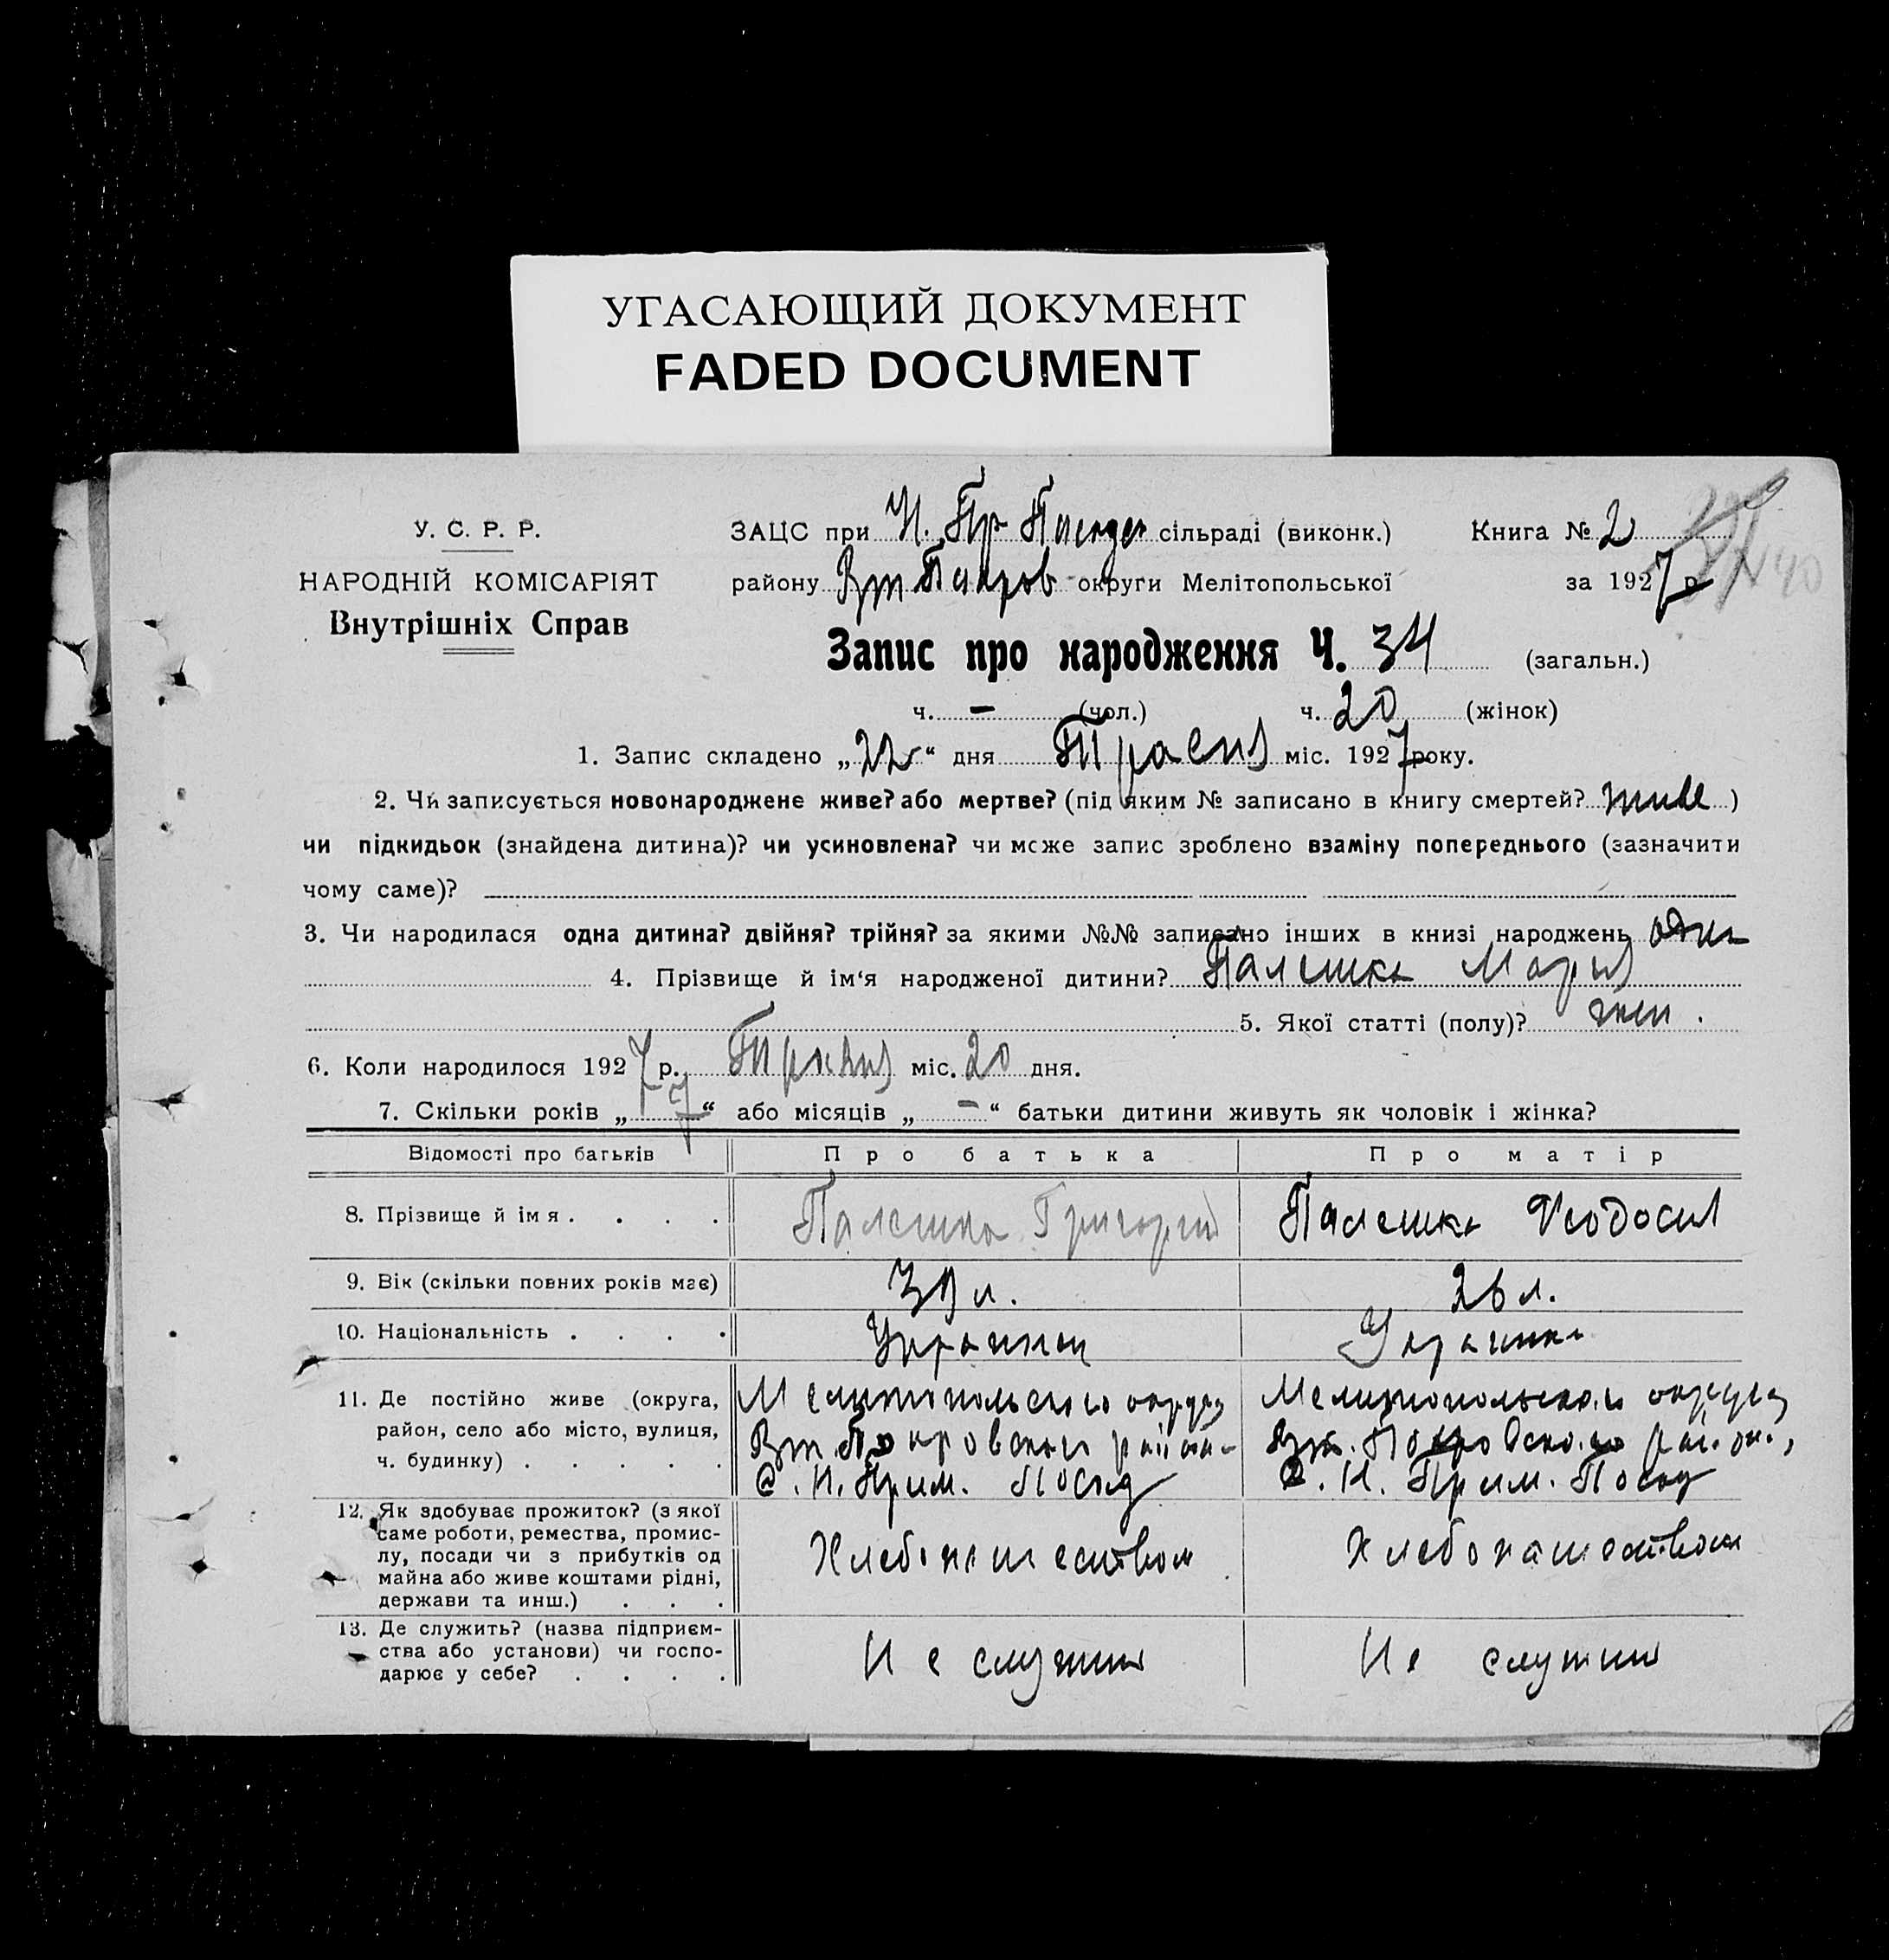 УГАСАЮЩИЙ ДОКУМЕНТ
FADED DOCUMENT
У. С. Р. Р.
НАРОДНІЙ КОМІСАРІЯТ
Внутрішніх Справ
ЗАЦС при Н. Пр Посад сільраді (виконк.)
району Вт Покров округи Мелітопольської
Книга № 2
за 1927 р.
40
Запис про народження Ч. 34 (загальн.)
ч. – (чол.) ч. 20 (жінок)
1. Запис складено „22“ дня Травня міс. 1927 року.
2. Чи записується новонароджене живе? або мертве? (під яким № записано в книгу смертей? живе )
чи підкидьок (знайдена дитина)? чи усиновлена? чи може запис зроблено взаміну попереднього (зазначити
чому саме)?
3. Чи народилася одна дитина? двійня? трійня? за якими №№ записано інших в книзі народжень одна
4. Прізвище й ім'я народженої дитини? Палешка Мария
5. Якої статті (полу)? жен.
6. Коли народилося 1927 р. Травня міс. 20 дня.
7. Скільки років „7“ або місяців „–“ батьки дитини живуть як чоловік і жінка?
Відомості про батьків Про батька Про матір
8. Прізвище й імя . . . . Палешка Григорий Палешка Феодосия
9. Вік (скільки повних років має) 39 л. 26 л.
10. Національність . . . . Украинец Украинка
11. Де постійно живе (округа,
район, село або місто, вулиця,
ч. будинку) . . . . .
Мелитопольского округу
Вт. Покровского район
С. Н. Прим. Посад
Мелитопольского округу
Вт. Покровского район
С. Н. Прим. Посад
12. Як здобуває прожиток? (з якої
саме роботи, ремества, промис-
лу, посади чи з прибутків од
майна або живе коштами рідні,
держави та инш.) . . .
Хлебопашеством
Хлебопашеством
13. Де служить? (назва підприєм-
ства або установи) чи госпо-
дарює у себе? . . . .
Не служит
Не служит